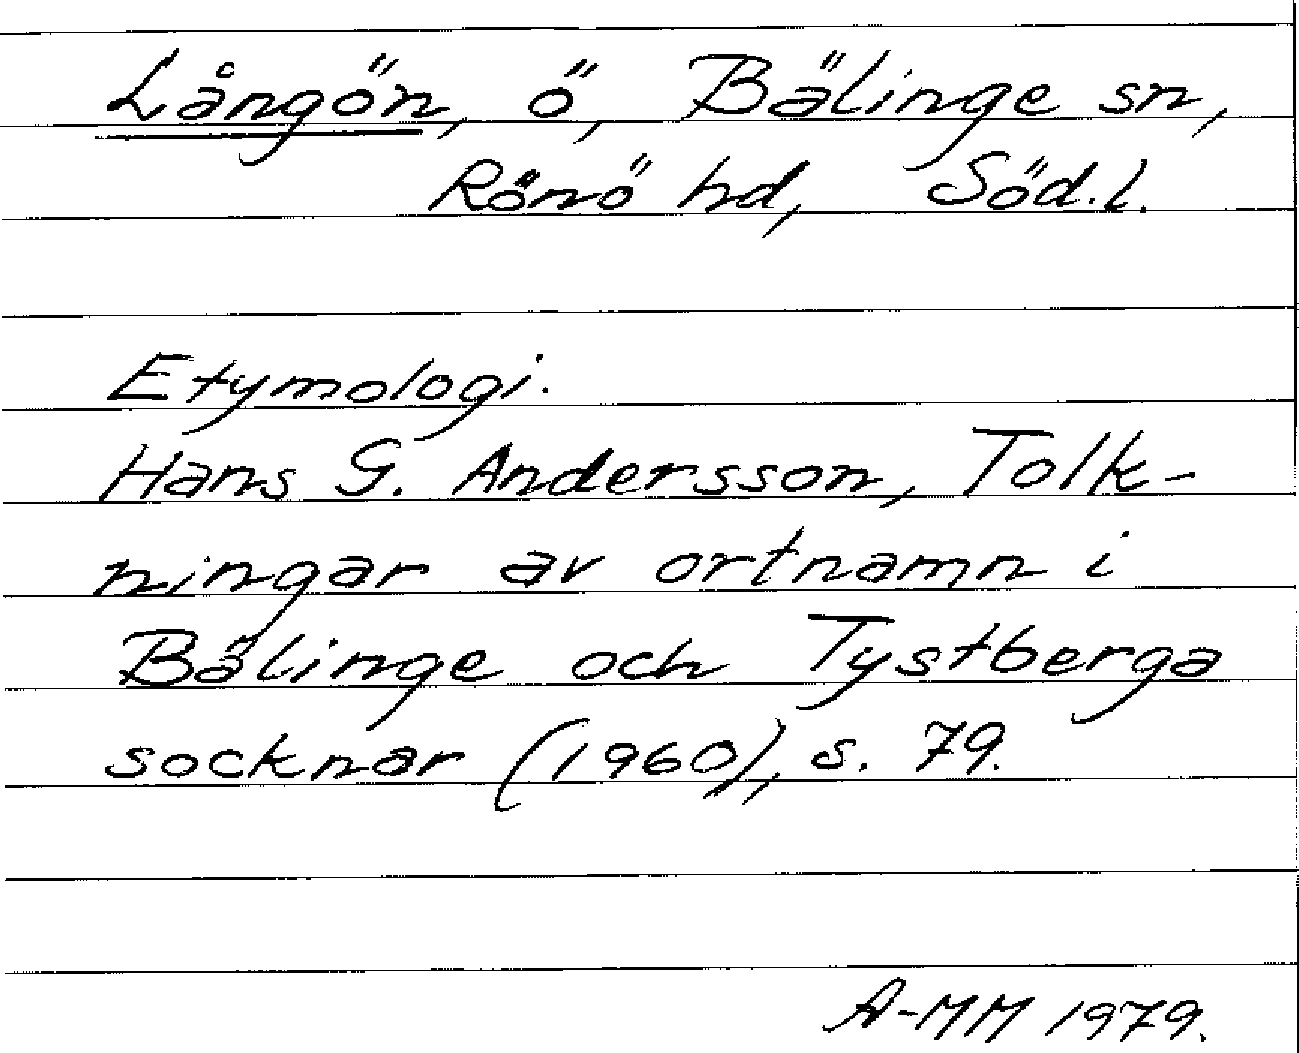 Långön, ö, Bälinge sn,
Rönö hd, Söd.l.
Etymologi.
Hans G. Andersson, Tolk-
ningar av ortnamn i
Bälinge och Tystberga
socknar (1960), s. 79.
A-MM 1979.